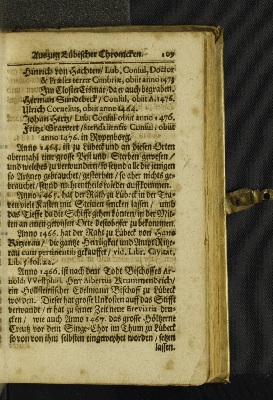 Auszug Lübischer Chronicken. 109
Hinrich von Hachten/ Lub. Consul, Doctor
& Præses terræ Cimbriæ, obiit anno 1473
Im Closter Cismar/ da er auch begraben.
Herman Sundebeck/ Consul, obiit A. 1476.
Ulrich Cornelius, obiit anno 1464.
Johan Hertz/ Lub. Consul obiit anno 1476.
Fritze Grawert/ Consul: obiit
anno 1476. in
Anno 1464. ist zu Lübeck und an diesen Orten
abermahl eine grosse Pest und Sterben gewesen/
und welches zu verwundern/ so seynd die jenigen
so Artzney gebrauchet/ gestorben/ so aber nichts ge-
brauchet/ seynd wieder auffkommen.
Anno 1465. hat der Raht zu Lübeck in der Tra-
ven viele Kasten mit Steinen sencken lassen/ umb
das Tieffe da die Schiffe gehen könten/ in der Mit-
ten an einen gewissen Orte destobesser zu bekommen.
Anno 1466. hat der Raht zu Lübeck von Hans
Ritzerau/ die gantze Herrligkeit und Ampt Ritze-
rau cum pertinentiis gekauffet/ vid. Libr. Civitat.
Lub. fol. 22.
Anno 1466. ist nach dem Todt Bischoffes Ar-
noldi Westphal/ Herr Albertus Krummendeich/
ein Holsteinischer Edelmann Bischoff zu Lübeck
worden. Dieser hat grosse Unkosten auff das Stifft
verwandt/ er hat zu seiner Zeit neue Breviaria dru-
cken/ wie auch Anno 1467. das grosse Höltzerne
Creutz vor dem Singe-Chor im Thum zu Lübeck
so von ihm selbsten eingeweyhet worden/ setzen
lassen.